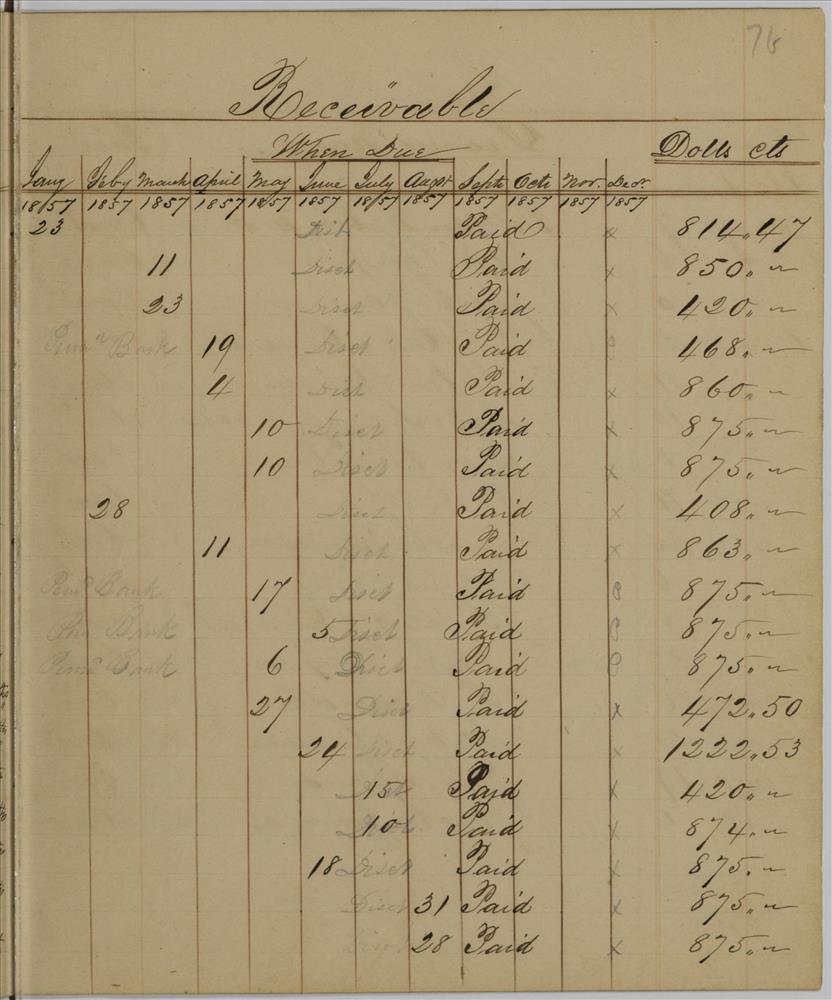 76
Receivable
When Due Dolls cts
Jany Feby March April May June July Augst Septr Octr Novr. Decr.
1857 1857 1857 1857 1857 1857 1857 1857 1857 1857 1857 1857
23 Disct Paid x 814,,47
11 Disct Paid x 850,, ~
23 Disct Paid x 420,, ~
Penna Bank 19 Disct Paid P 468,, ~
4 Disct Paid x 860,, ~
10 Disct Paid x 875,, ~
10 Disct Paid x 875,, ~
28 Disct Paid x 408,, ~
11 Disct Paid x 863,, ~
Penna Bank 17 Disct Paid P 875,, ~
Penna Bank 5 Disct Paid P 875,, ~
Penna Bank 6 Disct Paid P 875,, ~
27 Disct Paid x 472,,50
24 Disct Paid x 1222,,53
Disct 15 Paid x 420,, ~
Disct 10 Paid x 874,, ~
18 Disct Paid x 875,, ~
Disct 31 Paid x 875,, ~
Disct 28 Paid x 875,, ~